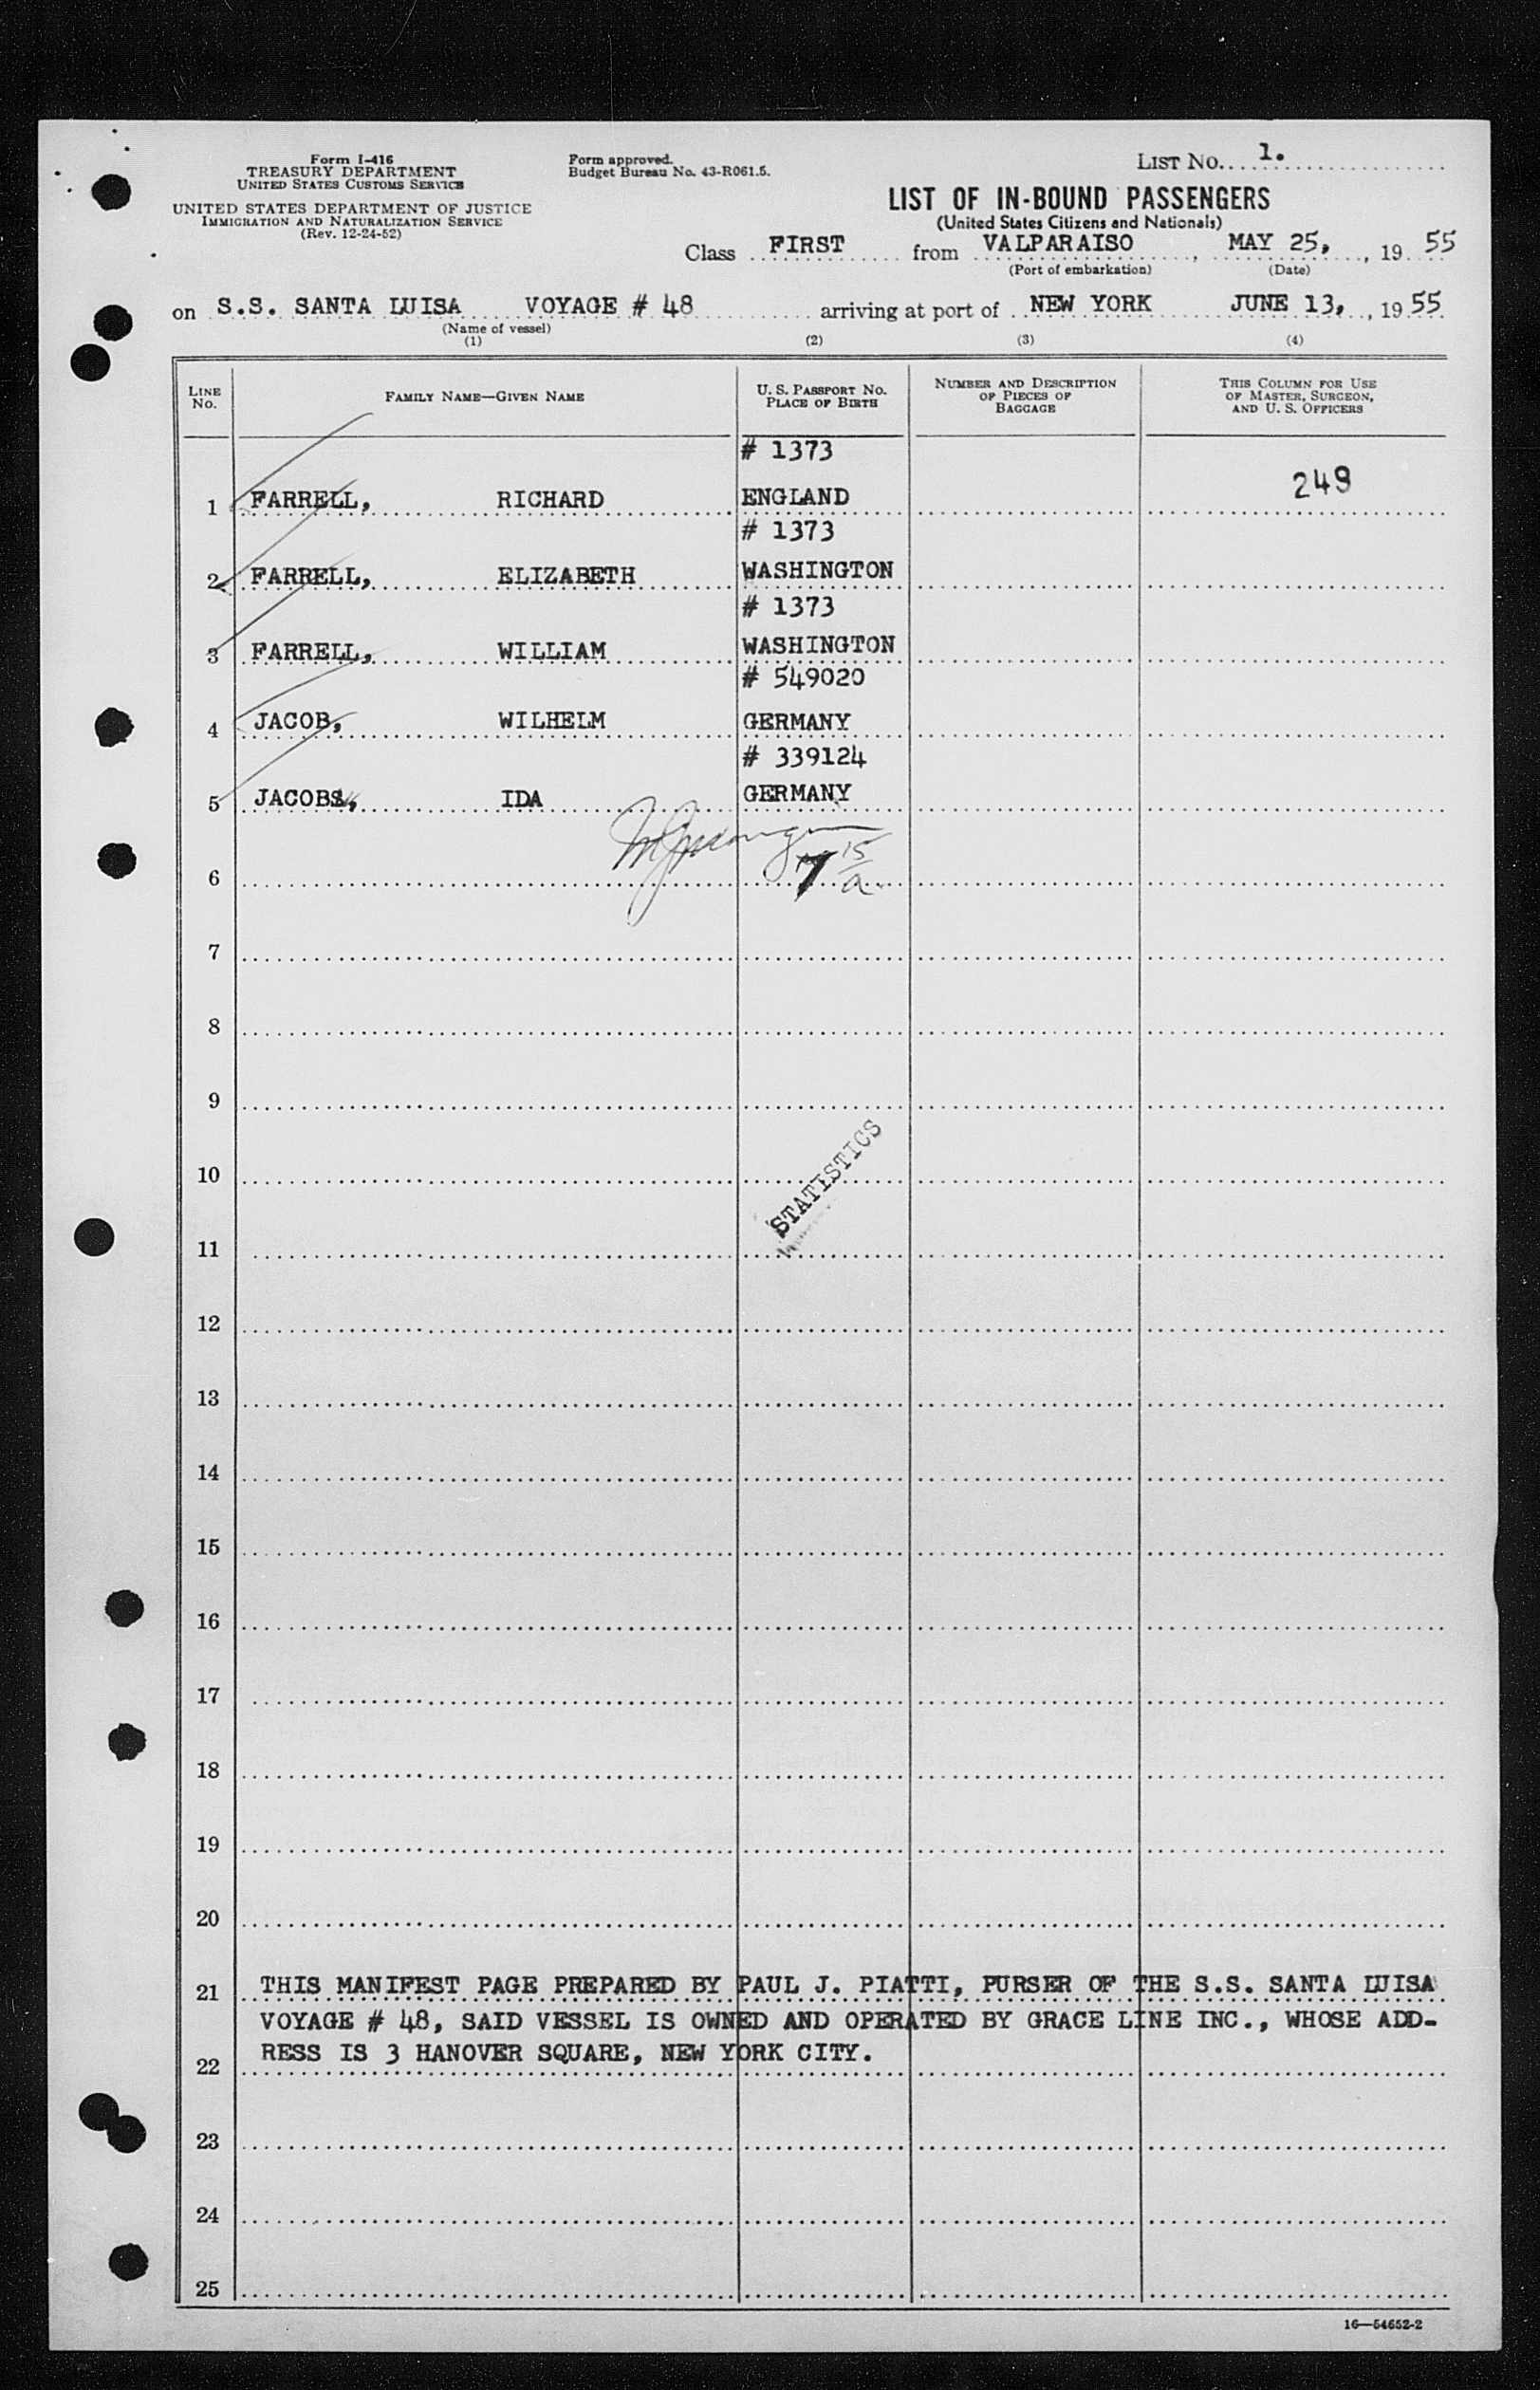 Form I-416
TREASURY DEPARTMENT
UNITED STATES CUSTOMS SERVICE
UNITED STATES DEPARTMENT OF JUSTICE
IMMIGRATION AND NATURALIZATION SERVICE
(Rev. 12-24-52)
Form approved.
Budget Bureau No. 43-R061.5.
LIST NO. 1.
LIST OF IN-BOUND PASSENGERS
(United States Citizens and Nationals)
Class FIRST from VALPARAISO, MAY 25, , 19 55
(Port of embarkation) (Date)
on S.S. SANTA LUISA VOYAGE # 48 arriving at port of NEW YORK JUNE 13, , 19 55
(Name of vessel)
(1) (2) (3) (4)
LINE NO. FAMILY NAME—GIVEN NAME U. S. PASSPORT NO. PLACE OF BIRTH NUMBER AND DESCRIPTION OF PIECES OF BAGGAGE THIS COLUMN FOR USE OF MASTER, SURGEON, AND U. S. OFFICERS
# 1373
249
1 FARRELL, RICHARD ENGLAND
# 1373
2 FARRELL, ELIZABETH WASHINGTON
# 1373
3 FARRELL, WILLIAM WASHINGTON
# 549020
4 JACOB, WILHELM GERMANY
# 339124
5 JACOBS, IDA GERMANY
7 15/a
6
7
8
9
STATISTICS
10
11
12
13
14
15
16
17
18
19
20
21 THIS MANIFEST PAGE PREPARED BY PAUL J. PIATTI, PURSER OF THE S.S. SANTA LUISA
VOYAGE # 48, SAID VESSEL IS OWNED AND OPERATED BY GRACE LINE INC., WHOSE ADD-
22 RESS IS 3 HANOVER SQUARE, NEW YORK CITY.
23
24
25
16—54652-2